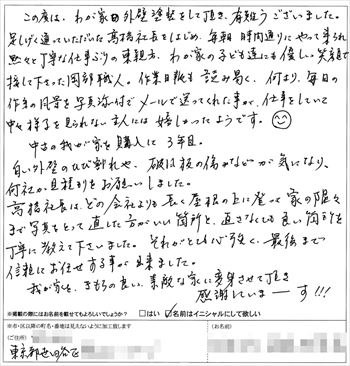 この度は、わが家の外壁塗装をして頂き、有難うございました。
足しげく通っていただいた高橋社長をはじめ、毎日時間通りにやって来られ
黙々と丁寧な仕事ぶりの東親方、わが家の子ども達にも優しい笑顔で
接して下さった岡部職人。作業日報も読み易く、何より、毎日の
作業の風景を写真添付でメールで送ってくれた事が、仕事をしていて
中々様子を見られない主人には嬉しかったようです。
中古の我が家を購入して3年目。
白い外壁のひび割れや、破風板の傷みなどが気になり、
何社か見積りをお願いしました。
高橋社長は、どの会社よりも長く屋根の上に登って家の隅々
まで写真をとって直した方がいい箇所と、直さなくても良い箇所を
丁寧に教えて下さいました。それがとても心強く、最後まで
信頼してお任せする事が出来ました。
我が家を、きもちの良い、素敵な家に変身させて頂き
感謝していまーす!!!
※掲載の際にはお名前を載せてもよろしいでしょうか？ □はい ☑名前はイニシャルにして欲しい
※市・区以降の町名・番地は見えないように加工致します
（ご住所） （お名前）
東京都世田谷区